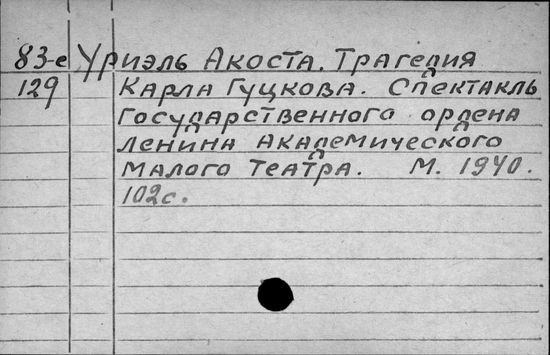 83-е Уриэль Акоста. Трагедия
129 Карла Гуцкова. Спектакль
Государственного ордена
Ленина Академического
Малого Театра. М. 1940.
102с.